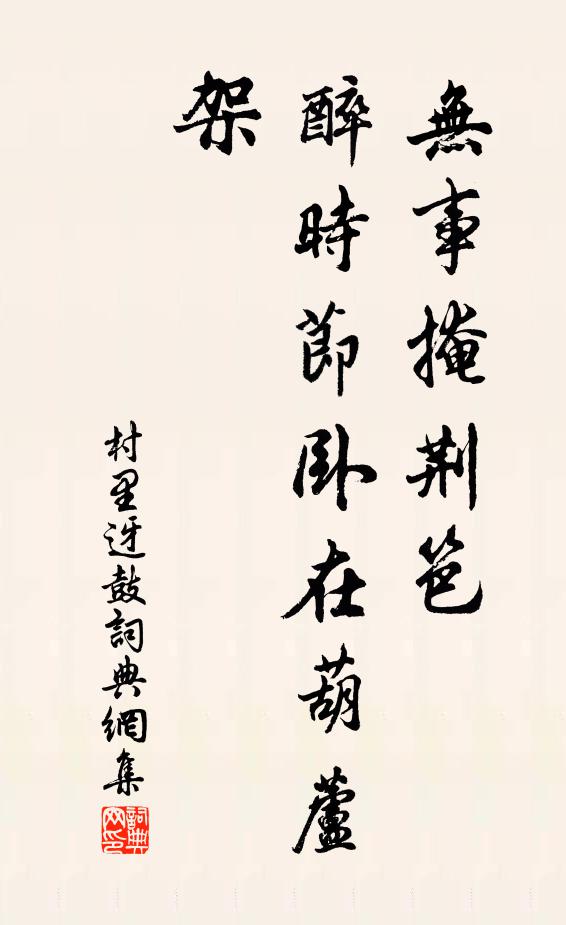 無事掩荆笆
醉時節卧在葫蘆
架
村里迓鼓詞典網集
詞典
网印